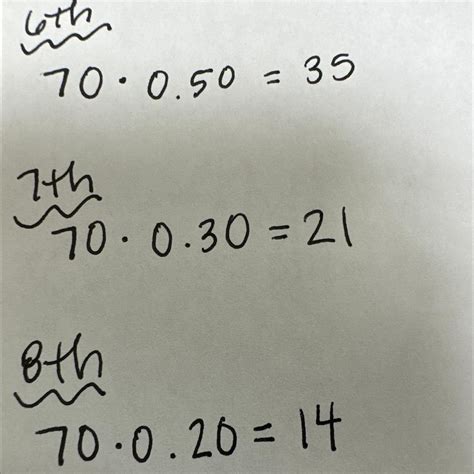 6th
70 · 0.50 = 35
7th
70 · 0.30 = 21
8th
70 · 0.20 = 14